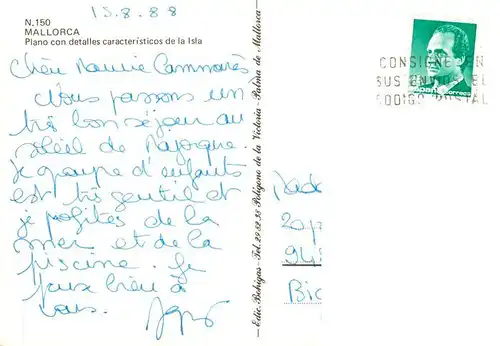 15.8.88
N.150
MALLORCA
Plano con detalles característicos de la Isla
Chère Mamie
Nous passons un
très bon séjour au
soleil de Majorque.
Le groupe d'enfants
est très gentil et
je profites de la
mer et de la
piscine. Je
bien à
vous.
Edic. Bohigas - Tel. 29.82.38 Polígono de la Victoria - Palma de Mallorca
CONSIGNE EN
SUS ENVIOS EL
CODIGO POSTAL
correos
20
948
Bi